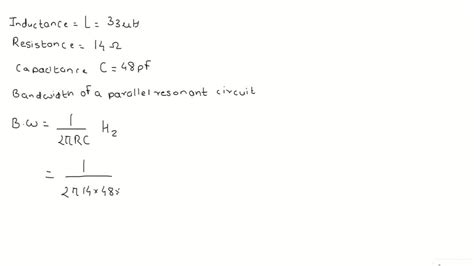 Inductance = L = 33μH
Resistance = 14 Ω
Capacitance C = 48 pf
Bandwidth of a parallel resonant circuit
B.W = 1/2πRC Hz
= 1/2π 14 × 48×